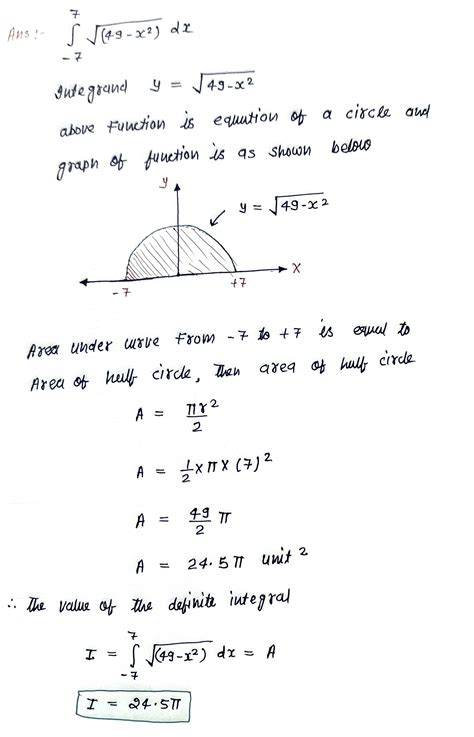 Ans:- ∫_{-7}^{7} √(49-x²) dx
Integrand y = √49-x²
above Function is equution of a circle and
graph of function is as shown below
y
y = √49-x²
x
-7 +7
Area under curve From -7 to +7 is equal to
Area of half circle, Then area of half circle
A = πr²/2
A = 1/2 × π × (7)²
A = 49/2 π
A = 24.5π unit²
∴ The value of the definite integral
I = ∫_{-7}^{7} √(49-x²) dx = A
I = 24.5π